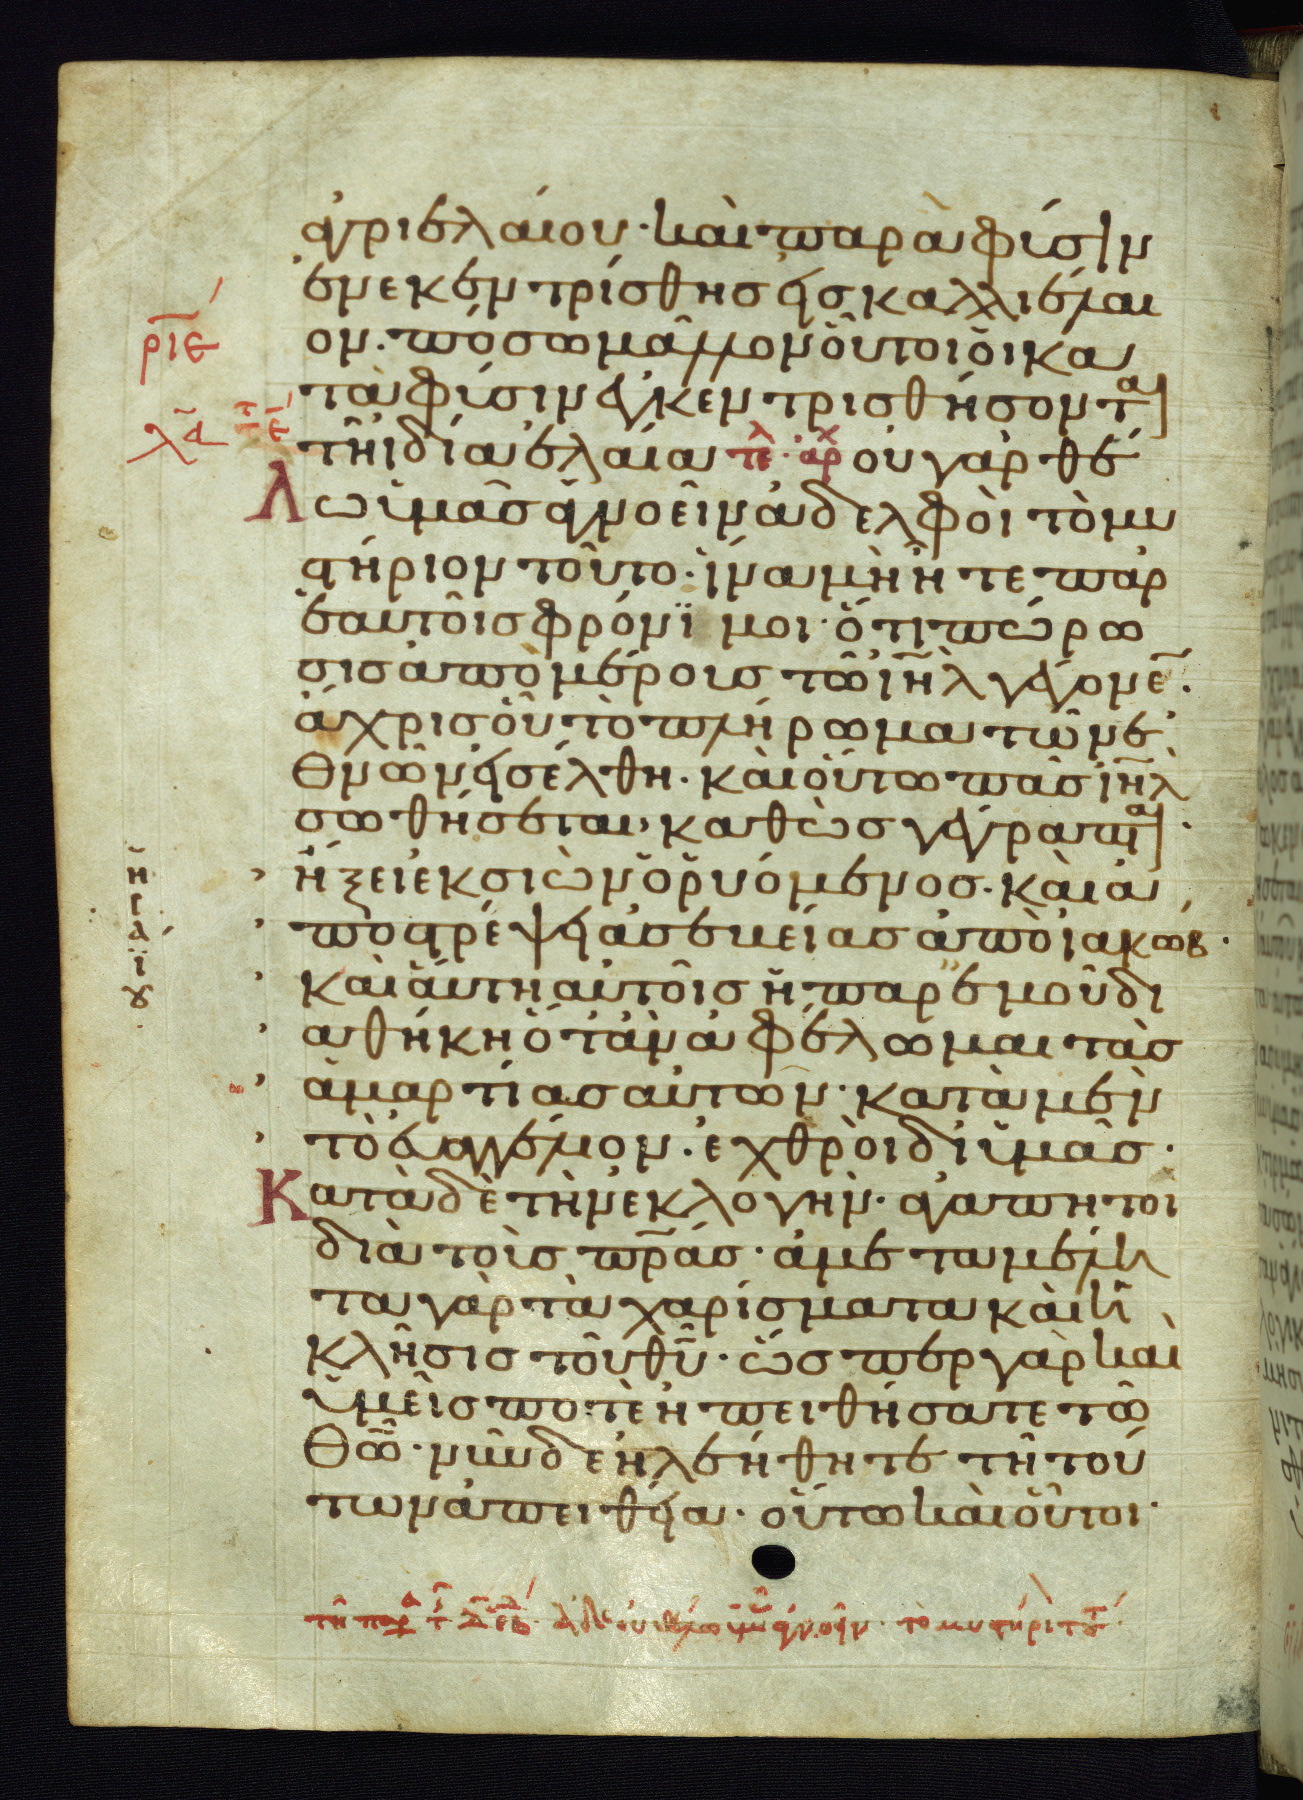 ἀγριελαίου· καὶ παρὰ φύσιν
ἐνεκεντρίσθησ εἰσ καλλιέλαι
ον· πόσω μᾶλλον οὗτοι οἱ κα
τὰ φύσιν ἐγκεντρισθήσονται
τῆ ἰδία ἐλαία τελ· ἀρχ οὐ γὰρ θέ
λω ὑμᾶσ ἀγνοεῖν ἀδελφοὶ τὸ μυ
στήριον τοῦτο· ἵνα μὴ ἦτε παρ
ἑαυτοῖσ φρόνϊμοι· ὅτι πώρω
σισ ἀπὸ μέρουσ τῶ ἰη̅λ γέγονε̅·
ἄχρισ οὗ τὸ πλήρωμα τῶν ἐ
θνῶν εἰσέλθη· καὶ οὕτω πᾶσ ἰη̅λ
σωθήσεται, καθὼσ γέγραπται·
ἥξει ἐκ σιὼν ὁ ῥυόμενοσ· καὶ ἀ
ποστρέψει ἀσεβείασ ἀπὸ ἰακωβ·
καὶ αὕτη αὐτοῖσ ἡ παρ ἐμοῦ δι
αθήκη ὅταν ἀφέλωμαι τὰσ
ἁμαρτίασ αὐτῶν· κατὰ μὲν
τὸ εὐαγγέλιον· ἐχθροὶ δι ὑμᾶσ·
Κατὰ δὲ τὴν ἐκλογὴν· ἀγαπητοι
διὰ τοὺσ πρ̅ασ· ἀμεταμέλη
τα γὰρ τὰ χαρίσματα καὶ ἡ
κλῆσισ τοῦ θυ̅· ὥσπερ γὰρ καὶ
ὑμεῖσ ποτὲ ἠπειθήσατε τῶ
Θω̅· νῦν δὲ ἠλεήθητε τῆ τού
των ἀπειθεία· οὕτω καὶ οὗτοι·
ρ̅ι̅ε̅
ἠσαΐου